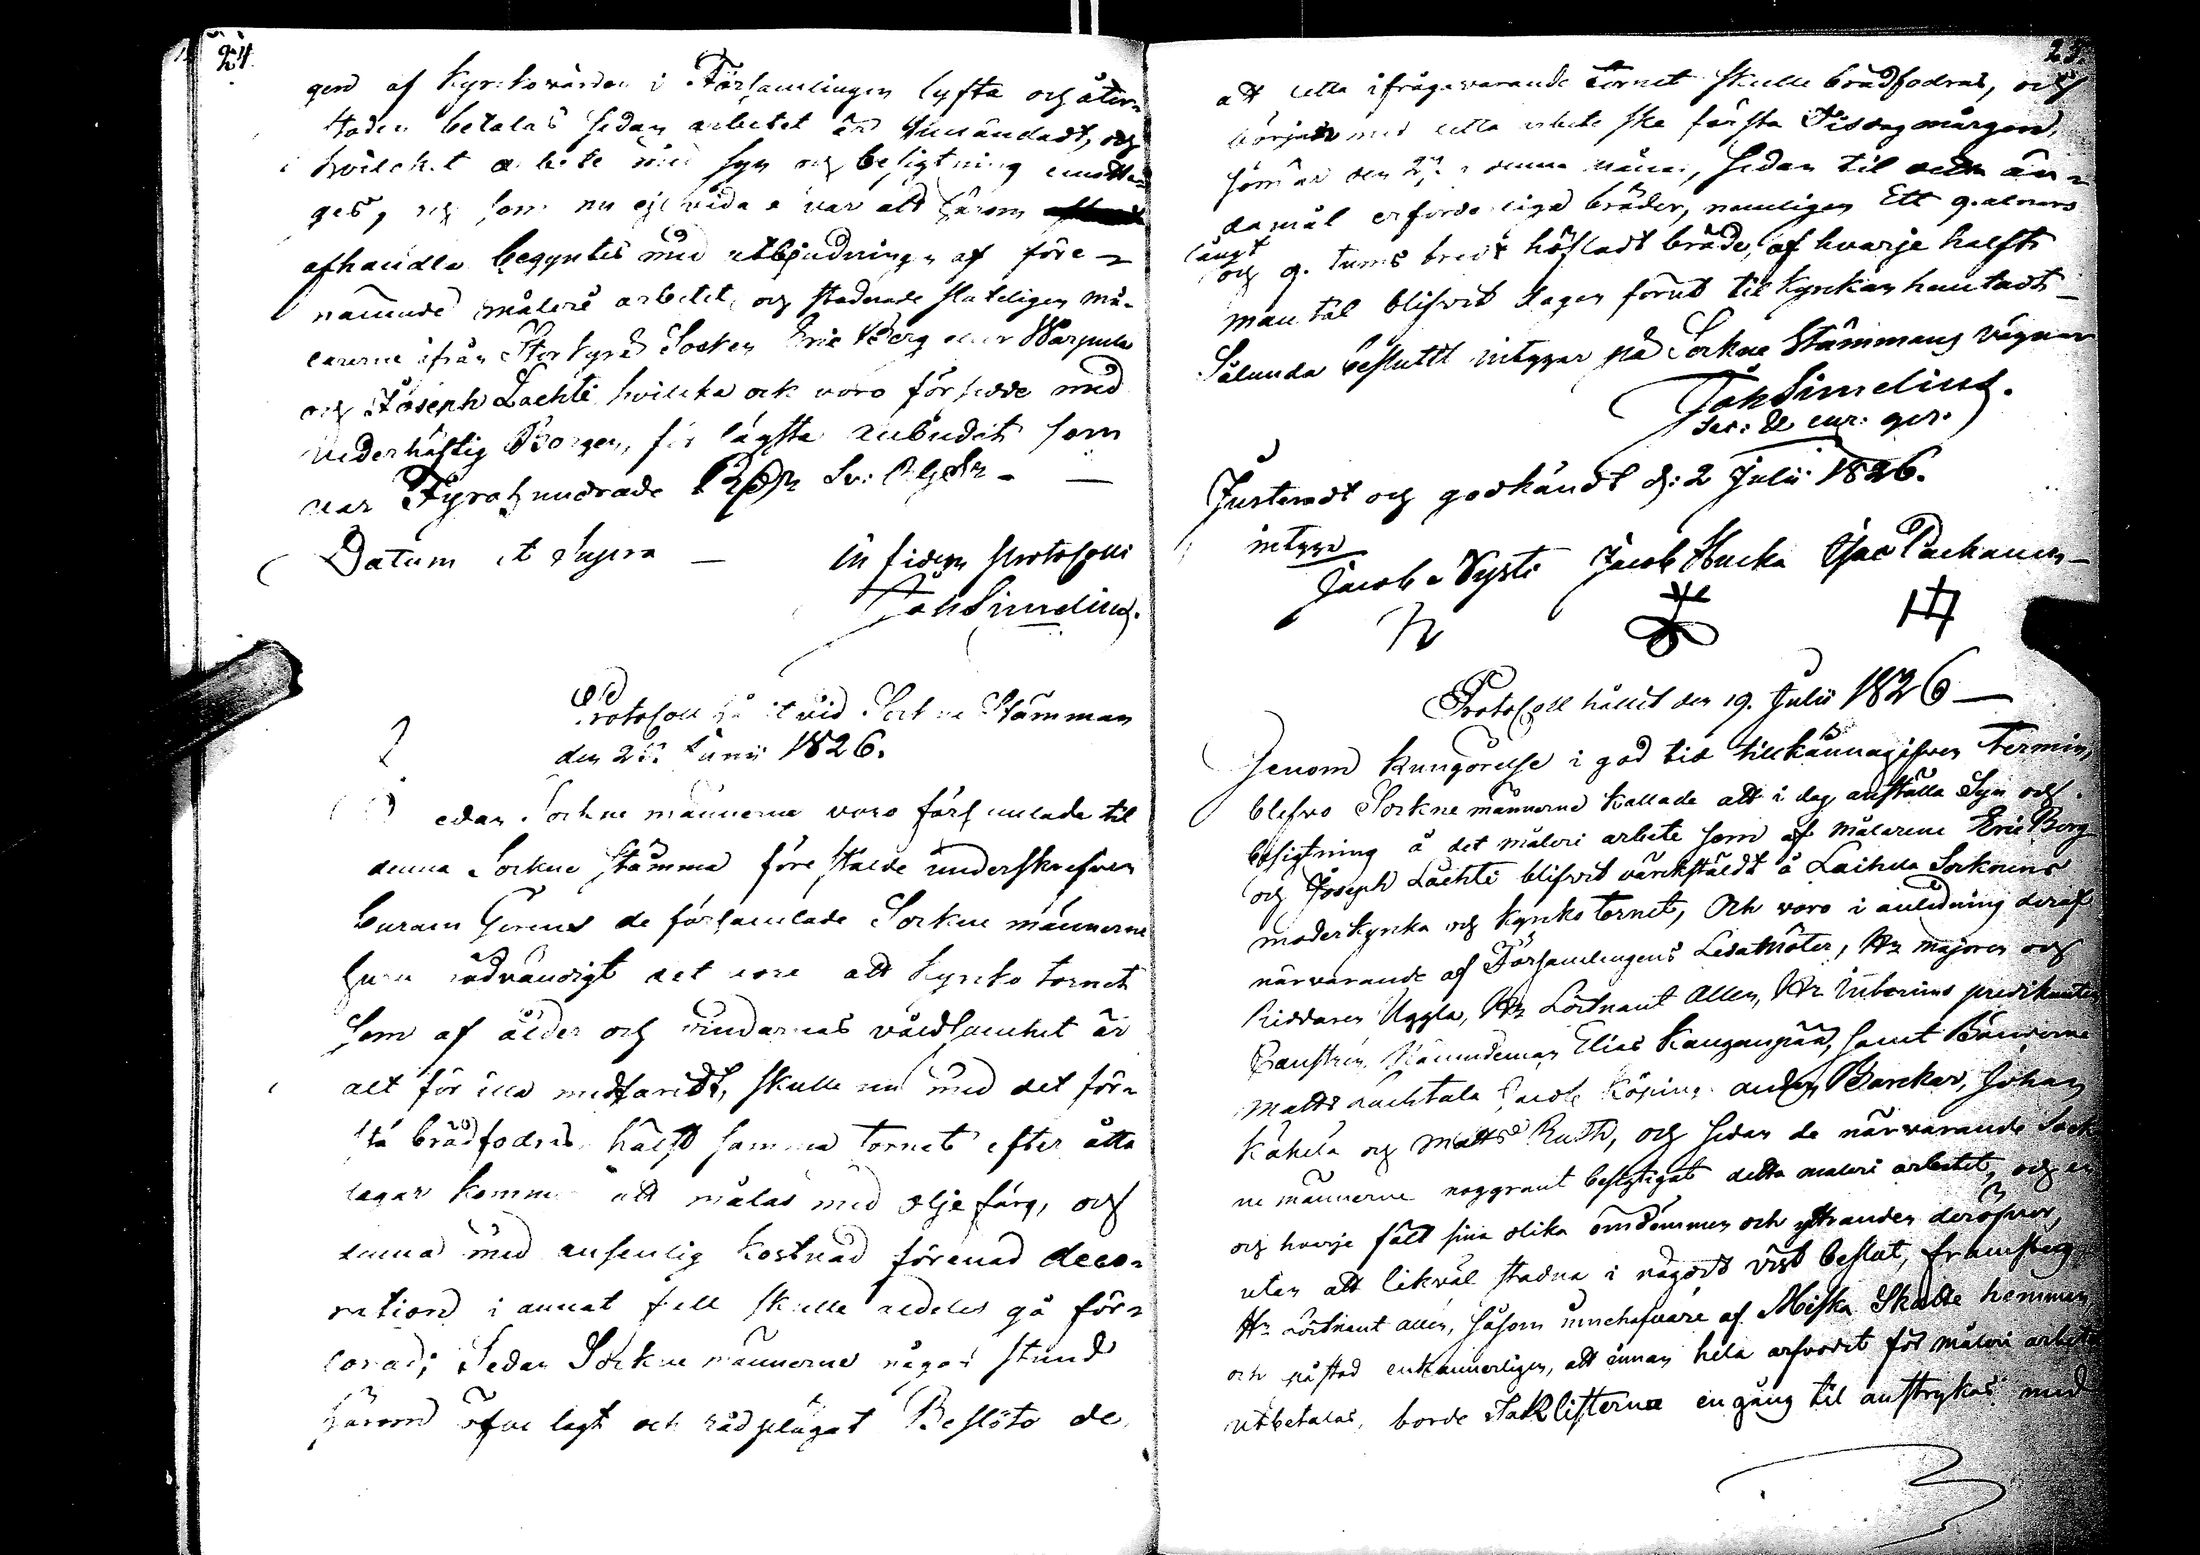 24.
gen af Kyrkovärden i Församlingen lyfta och åter-
stoden betalas sedan arbetet är fulländadt, och
hvilcket arbete med syn och besigtning emotta-
ges, och som nu ej vidare var att härom
afhandla begyntes med utbjudningen af före-
nämnde måleri arbetet, och stadnade sluteligen må-
larene ifrån Storkyro Socken Eric Berg eller Warpula
och Joseph Lachti hvilcka ock voro försedde med
vederhäftig Borgen, för lägsta anbudet som
var Fyrahundrade Rdr Sv: Rgdr -
Datum ut Supra - in fidem Protocolli
Joh Simelius.
Protocoll hållit vid Sockne Stämman
den 25. Junii 1826.
Sedan Sockne männerne voro församlade til
denna Sockne stämma föreställde underskrefven
Curam Gerens de församlade Sockne männerne
huru nödvändigt det vore att Kyrko tornet
som af ålder och vindarnas våldsamhet är
alt för illa medfaridt, skulle nu med det för-
sta brädfodras, hälst samma tornet efter åtta
dagar kommer att målas med olje färg, och
denna med ansenlig kostnad förenad deco-
ration i annat fall skulle aldeles gå för-
lorad; Sedan Sockne männerne någon stund
härom öfverlagt och rådplägat Beslöto de
25.
att detta ifrågavarande Tornet skulle brädfodras, och
början med detta arbete ske första Tisdag morgon,
som är den 27. i denna månad, sedan til detta än-
damål erforderliga bräder, nämligen Ett 9. alnars
långt
och 9. tums bredt höfladt bräde, af hvarje halft
mantal blifvit dagen förut til Kyrkan hemtadt -
Sålunda beslutit intygar på Sockne Stämmans vägnar
Joh Simelius.
Sac: et cur: ger:
Justeradt och godkändt d: 2 Julii 1826.
intyga
Jacob Nysti Jacob Hucka Isac Packanen -
Protocoll hållit den 19. Julii 1826 -
Genom kungörelse i god tid tillkännagifven Termin,
blefvo Sockne männerne kallade att i dag anställa Syn och
besigtning å det måleri arbete som af målarene Eric Berg
och Joseph Lachti blifvit värckstäldt å Laihela Socknens
moderkyrka och Kyrko tornet, Och voro i anledning deraf
närvarande af Församlingens Ledamöter, Hr Majoren och
Riddaren Uggla, Hr Löitnant Allén, Hr predikanten
Nämndeman Elias Kanganpää, samt Bönderne
Matts Jacob Köping Anders Barckar, Johan
Kähelä och Matts Ruth, och sedan de närvarande Sock-
ne männerne noggrant besigtigat detta måleri arbetet, och en
och hvarje fält sina olika omdömmen och yttranden deröfver,
utan att likväl stadna i någodt vist beslut, framsteg
Hr Löitnant Allén, såsom innehafvare af Miska Skatte hemman,
och påstod enkannerligen, att innan hela arfvodet för måleri arbetet
utbetalas, borde Taklisterna en gång til anstrykas med